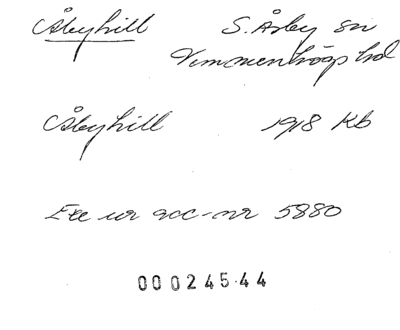 Åbyhill S. Åsby sn
Vemmenhögs hd
Åbyhill 1918 Kb
Exc ur acc-nr 5880
00024544